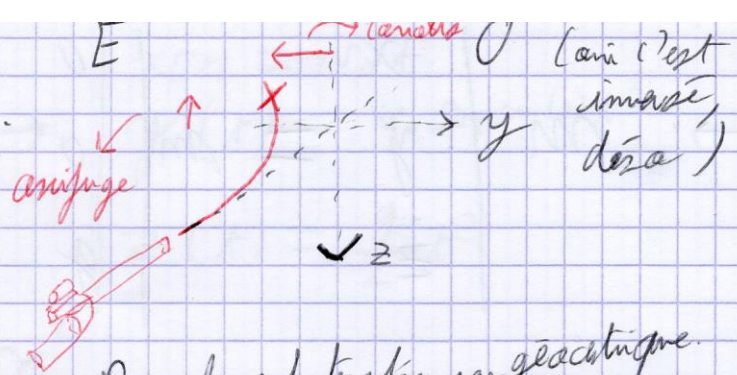 E
Coriolis
O
(oui c'est
inversé,
déso)
y
centrifuge
z
géocentrique.